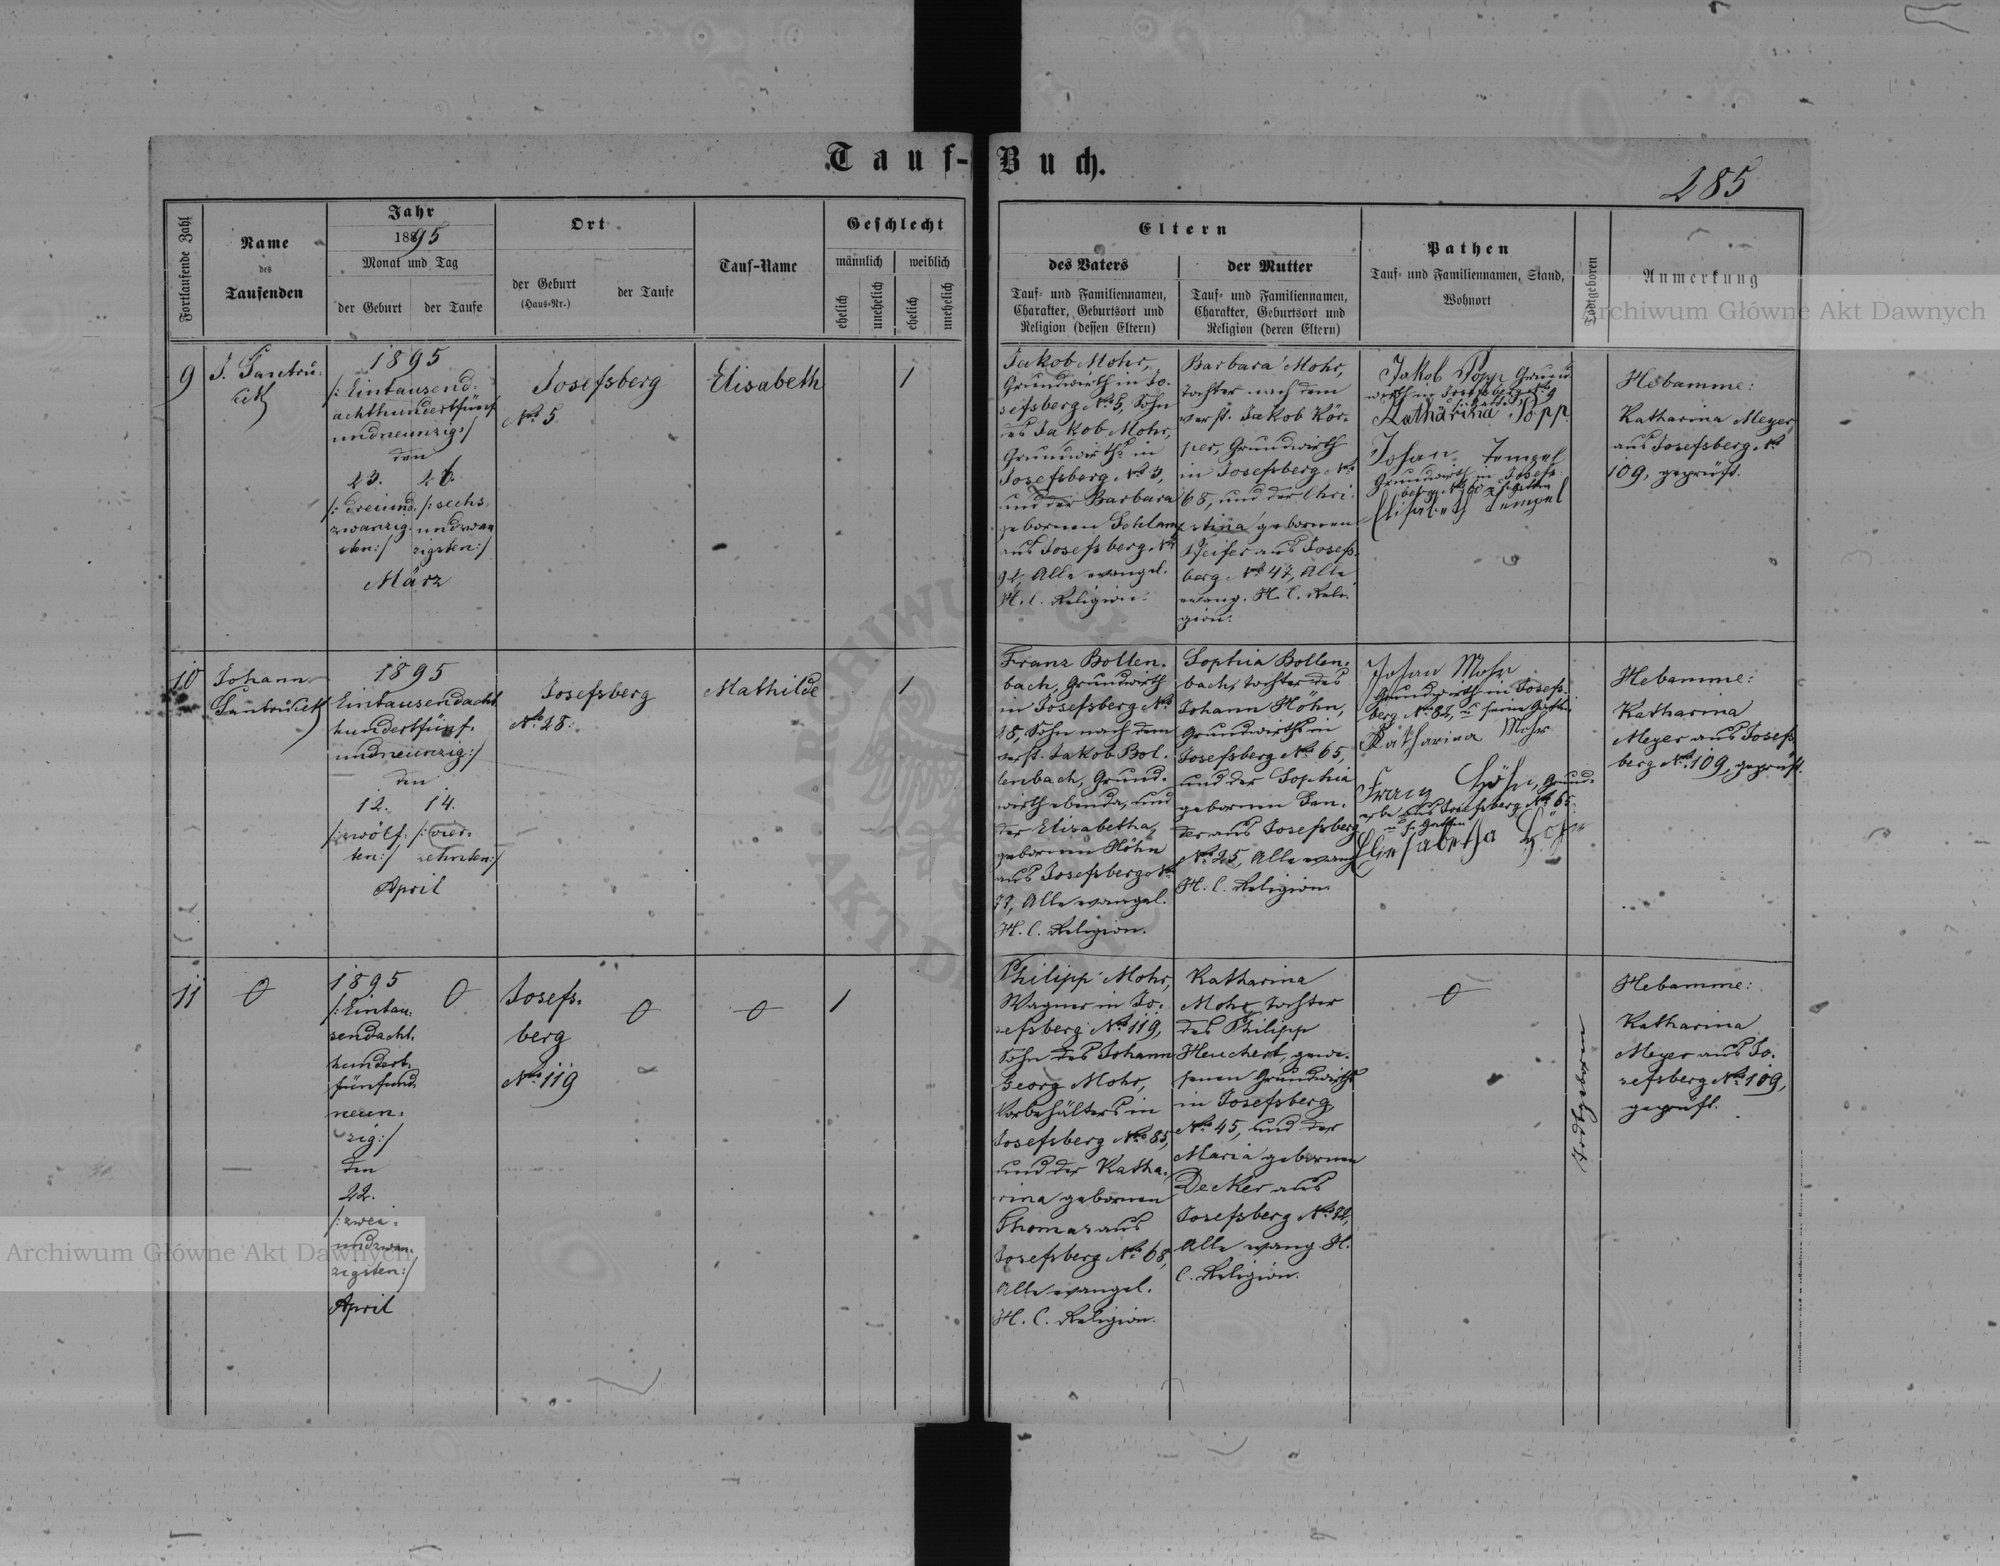 Tauf-Buch.
285
Fortlaufende Zahl
Name
des
Taufenden
Jahr
1895
Monat und Tag
der Geburt
der Taufe
Ort
der Geburt
(Haus-Nr.)
der Taufe
Tauf-Name
Geschlecht
männlich
weiblich
ehelich
unehelich
ehelich
unehelich
Eltern
des Vaters
Tauf- und Familiennamen,
Charakter, Geburtsort und
Religion (dessen Eltern)
der Mutter
Tauf- und Familiennamen,
Charakter, Geburtsort und
Religion (deren Eltern)
Pathen
Tauf- und Familiennamen, Stand,
Wohnort
Todtgeboren
Anmerkung
9
1895
/: Eintausend-
achthundertfünf
undneunzig :/
den
23. 26.
/: dreiund- /: sechs
zwanzig- undzwan
sten :/ zigsten :/
März
Josefsberg
No 5
Elisabeth
1
Jakob Mohr,
Grundwirth in Jo-
sefsberg No 5, Sohn
des Jakob Mohr,
Grundwirths in
Josefsberg No 5,
und der Barbara
gebornen
aus Josefsberg No
92, Alle evangel.
H. C. Religion.
Barbara Mohr,
Tochter nach dem
verst. Jakob Kör-
per, Grundwirth
in Josefsberg No
68, und der Chri-
stina gebornen
Pfeifer aus Josefs-
berg No 47, Alle
evang. H. C. Reli-
gion.
Jakob Popp Grund
wirth in Josefsberg
Katharina Popp
Johan Tempel
Grundwirth in Josefs
berg
Elisabeth Tempel
Hebamme:
Katharina Meyer
aus Josefsberg No
109, geprüft.
10
Johann
1895
Eintausendacht
hundertfünf-
undneunzig :/
den
12. 14.
/: zwölf- /: vier-
ten :/ zehnten :/
April
Josefsberg
No 28.
Mathilde
1
Franz Bollen-
bach, Grundwirth
in Josefsberg No
28, Sohn nach dem
verst. Jakob Bol-
lenbach, Grund-
wirth ebenda, und
der Elisabetha,
gebornen Höhn
aus Josefsberg No
77, Alle evangel.
H. C. Religion.
Sophia Bollen-
bach, Tochter des
Johann Höhn,
Grundwirths in
Josefsberg No 65,
und der Sophia
gebornen
aus Josefsberg
No 25, Alle evang
H. C. Religion.
Johan Mohr
Grundwirth in Josefs-
berg No 82, u seine Gattin
Katharina Mohr
Franz Höhn, Grund-
erbe aus Josefsberg No 65
u s. Gattin
Eliesabetha Höhn
Hebamme:
Katharina
Meyer aus Josefs
berg No 109, geprüft.
11
0
1895
/: Eintau-
sendacht-
hundert-
fünfund-
neun-
zig :/
den
22.
/: zwei-
undzwan-
zigsten :/
April
0
Josefs-
berg
No 119
0
0
1
Philipp Mohr,
Wagner in Jo-
sefsberg No 119,
Sohn des Johann
Georg Mohr,
Vorbehälters in
Josefsberg No 85,
und der Katha-
rina gebornen
Thomas aus
Josefsberg No 68,
Alle evangel.
H. C. Religion.
Katharina
Mohr, Tochter
des Philipp
Heuchert, gewe-
senen Grundwirths
in Josefsberg
No 45, und der
Maria gebornen
Decker aus
Josefsberg No 32,
Alle evang. H.
C. Religion.
0
Todtgeboren
Hebamme:
Katharina
Meyer aus Jo-
sefsberg No 109,
geprüft.
Archiwum Główne Akt Dawnych
Archiwum Główne Akt Dawnych